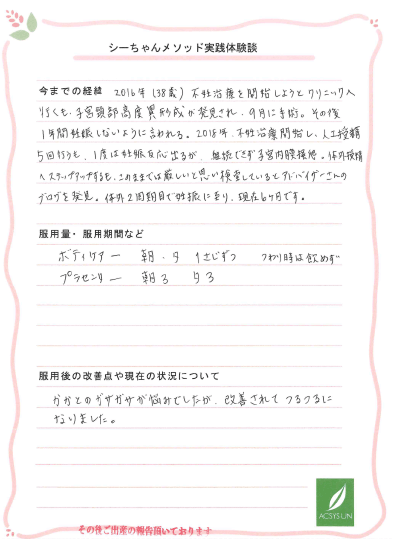 シーちゃんメソッド実践体験談
今までの経緯 2016年(38歳) 不妊治療を開始しようとクリニックへ
行くも、子宮頸部高度異形成が発見され、9月に手術。その後
1年間妊娠しないように言われる。2018年、不妊治療開始し、人工授精
5回行うも、1度は妊娠反応出るが、継続できず子宮内膜掻爬。体外授精
へステップアップするも、このままでは厳しいと思い検索しているとアドバイザーさんの
ブログを発見。体外2回期目で妊娠に至り、現在6ヶ月です。
服用量・服用期間など
ボディケアー 朝・夕 1さじずつ つわり時は飲めず
プラセンター 朝3 夕3
服用後の改善点や現在の状況について
かかとのガサガサが悩みでしたが、改善されて つるつるに
なりました。
ACSYSUN
その後ご出産の報告頂いております